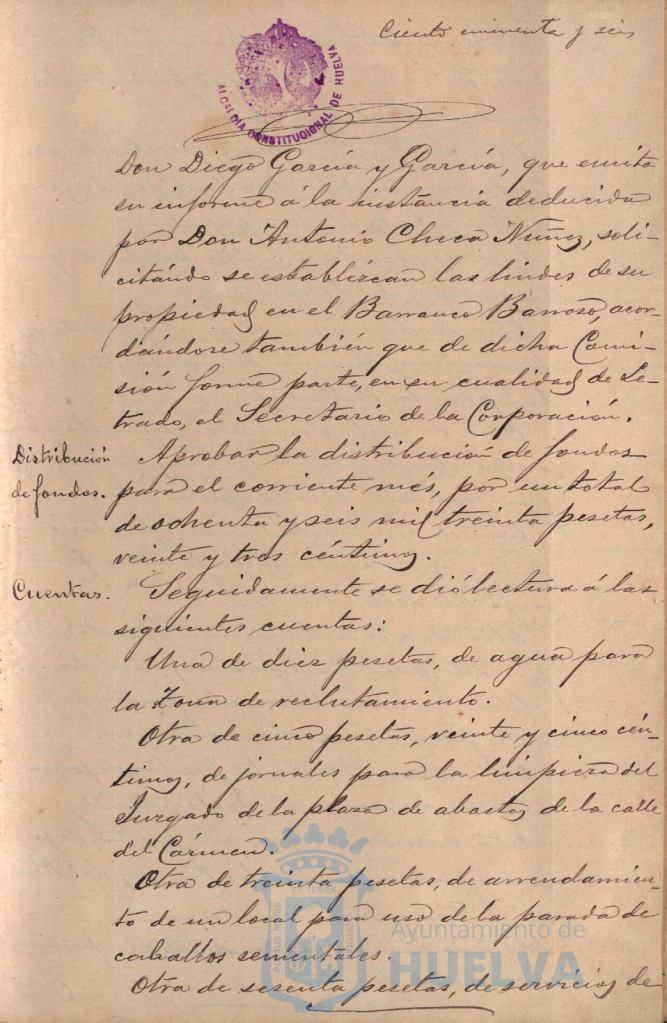 Ciento cincuenta y seis
ALCALDIA CONSTITUCIONAL DE HUELVA
Don Diego García y García, que emita
su informe á la instancia deducida
por Don Antonio Checa Núñez, soli-
citándo se establézcan las lindes de su
propiedad en el Barranco Barroso, acor-
dándose también que de dicha Comi-
sión forme parte, en su cualidad de Le-
trado, el Secretario de la Corporación.
Distribución
de fondos.
Aprobar la distribución de fondos
para el corriente més, por un total
de ochenta y seis mil treinta pesetas,
veinte y tres céntimos.
Cuentas.
Seguidamente se dió lectura á las
siguientes cuentas:
Una de diez pesetas, de agua para
la Zona de reclutamiento.
Otra de cinco pesetas, veinte y cinco cén-
timos, de jornales para la limpieza del
Juzgado de la plaza de abastos de la calle
del Cármen.
Otra de treinta pesetas, de arrendamien-
to de un local para uso de la parada de
caballos sementales.
Otra de sesenta pesetas, de servicios de
Ayuntamiento de
HUELVA